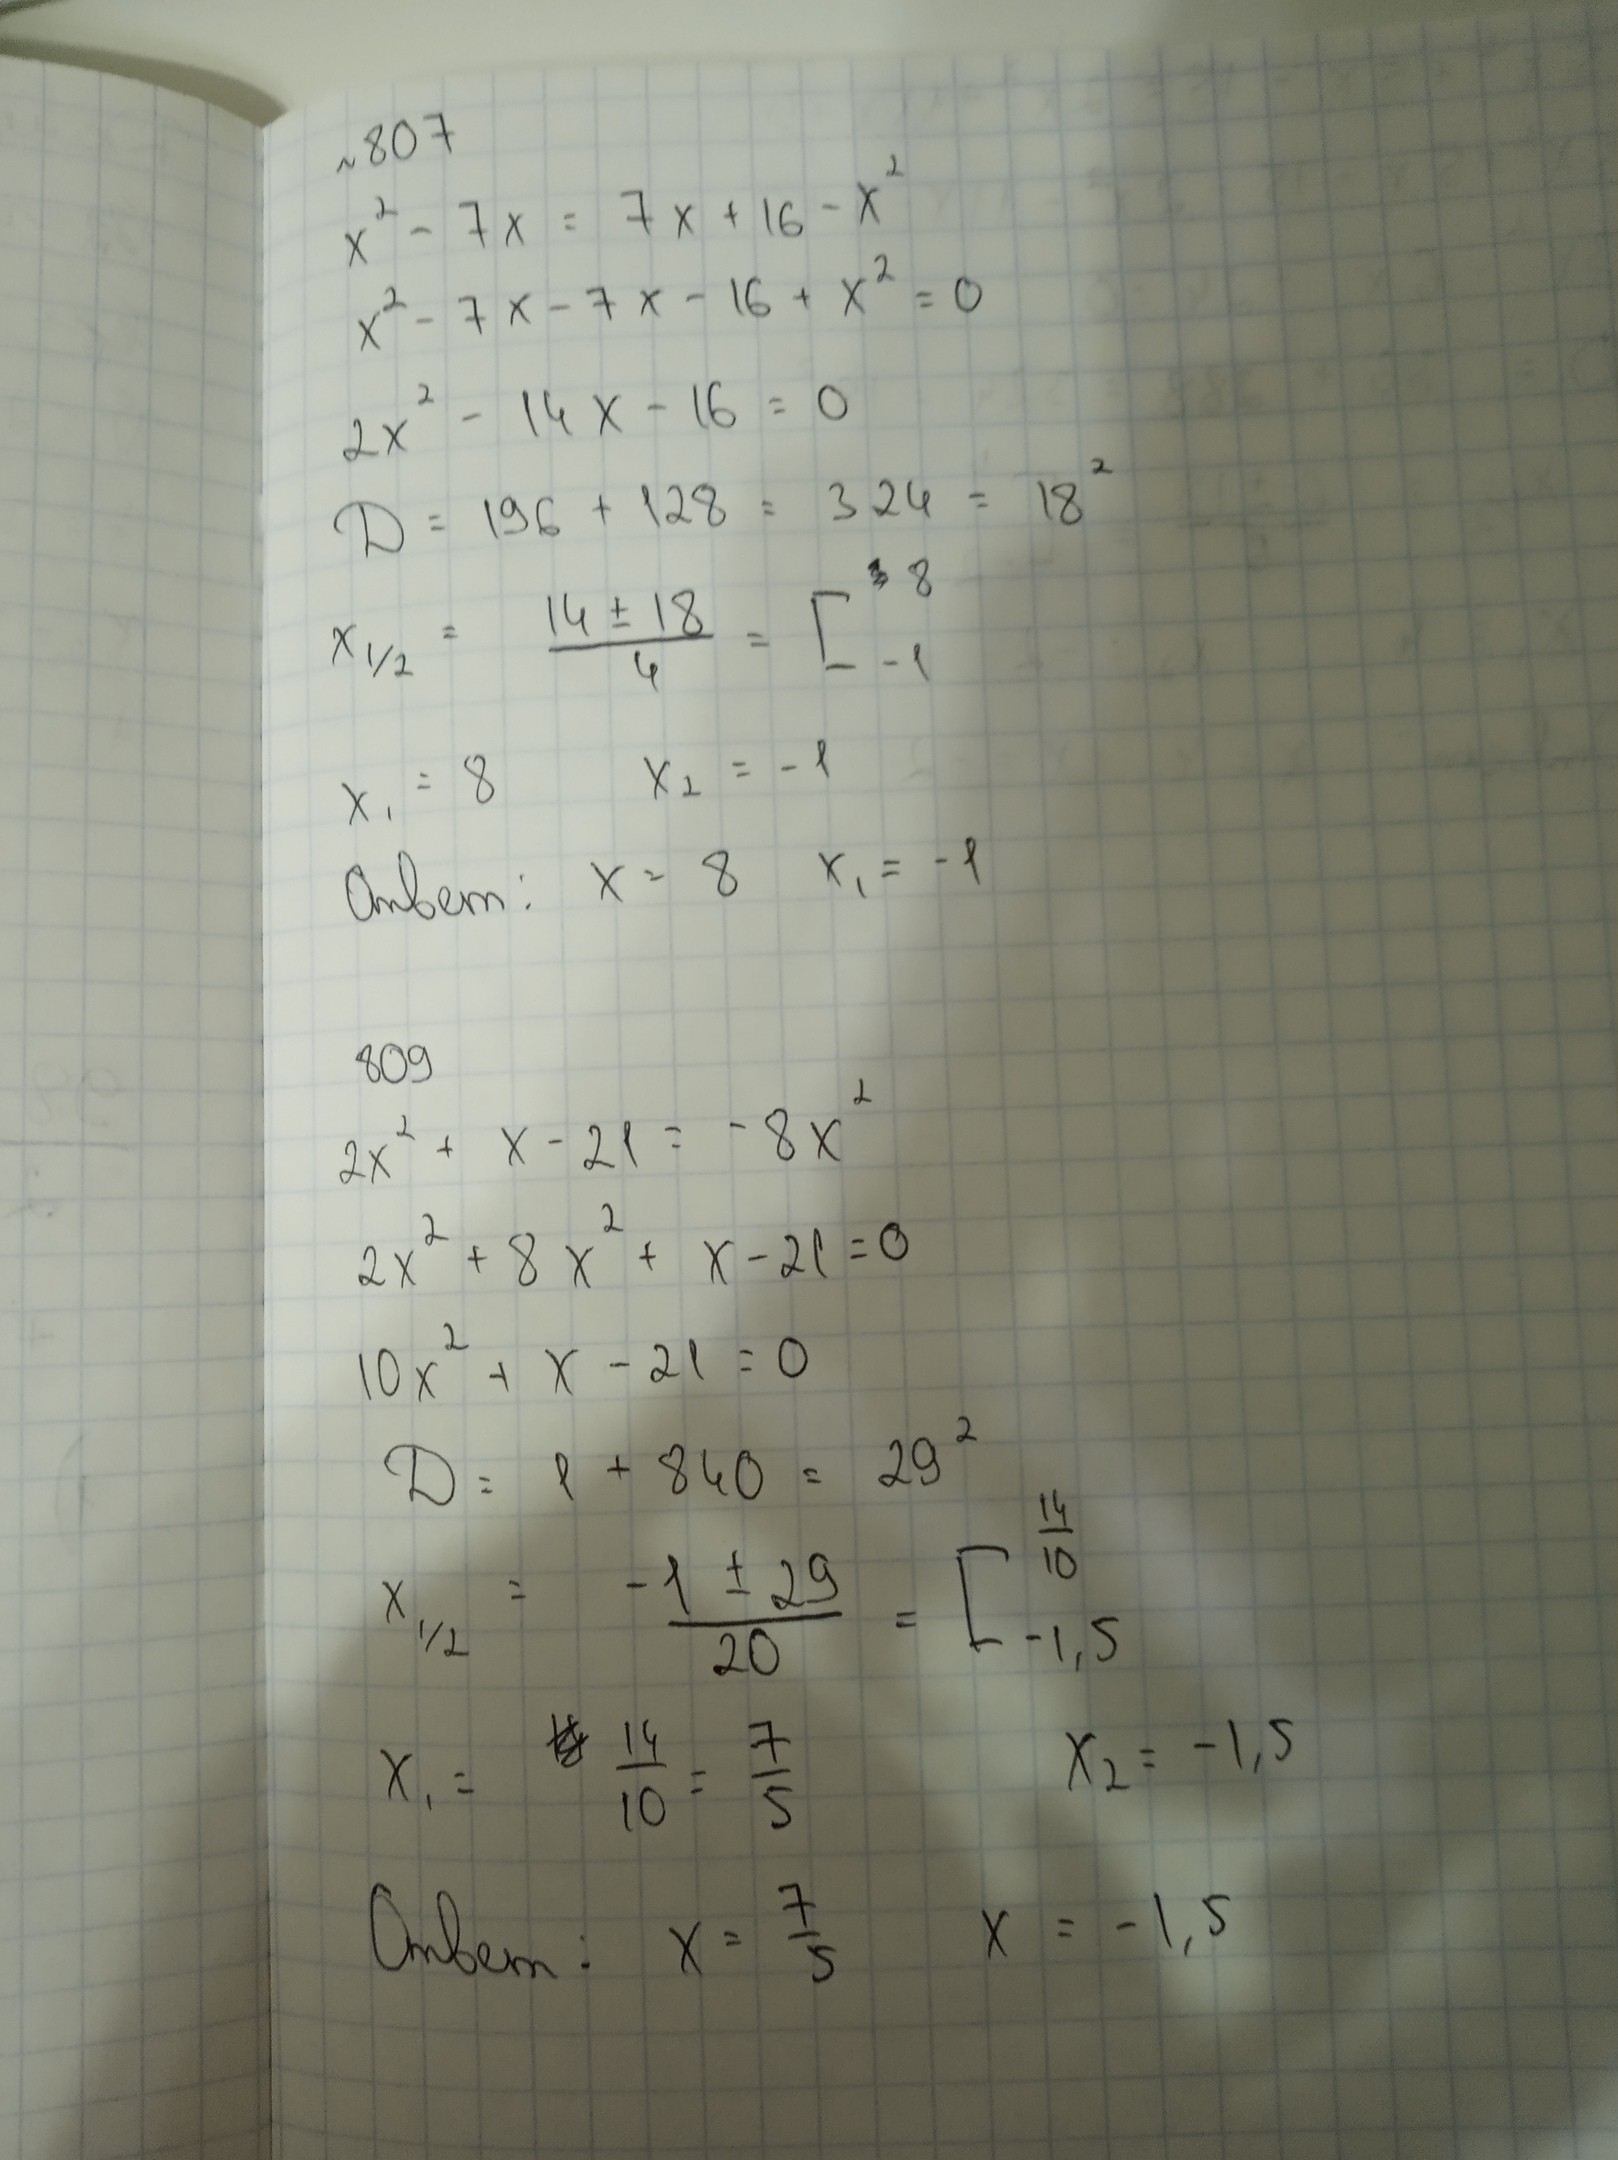 ~807
x² - 7x = 7x + 16 - x²
x² - 7x - 7x - 16 + x² = 0
2x² - 14x - 16 = 0
D = 196 + 128 = 324 = 18²
x1/2 = (14 ± 18)/4 = [ 8 -1
x₁ = 8 x₂ = -1
Ответ: x = 8 x₁ = -1
809
2x² + x - 21 = -8x²
2x² + 8x² + x - 21 = 0
10x² + x - 21 = 0
D = 1 + 840 = 29²
x1/2 = (-1 ± 29)/20 = [ 14/10 -1,5
x₁ = 14/10 = 7/5 x₂ = -1,5
Ответ: x = 7/5 x = -1,5